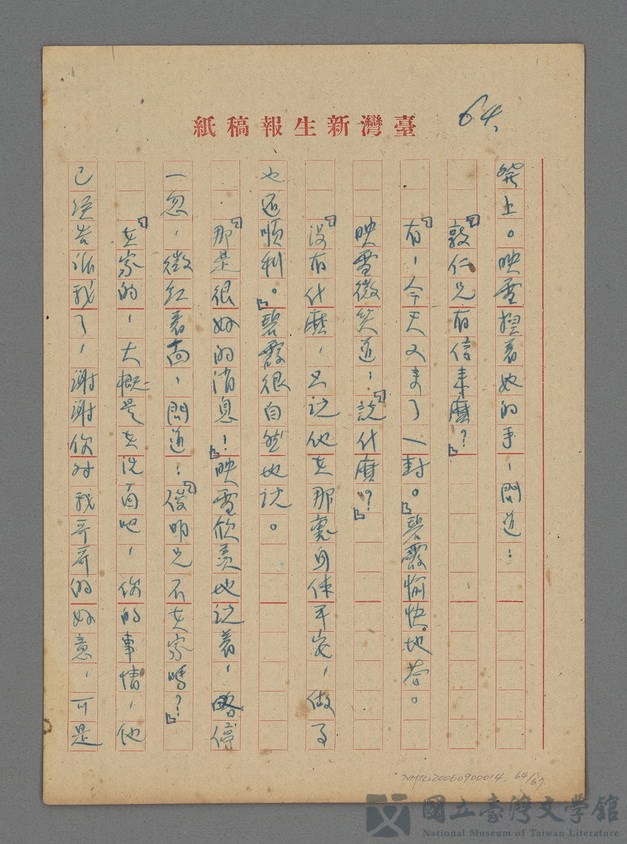 64.
臺灣新生報稿紙
凳上。映雪握着她的手,問道:
「敦仁兄有信來麼?」
「有,今天又來了一封。」碧霞愉快地答。
映雪微笑道:「説什麼?」
「沒有什麼,只說他在那裏身体平安,做事
也还順利。」碧霞很自然地說。
「那是很好的消息!」映雪欣羡地說着,略停
一忽,微红着面,問道:「俊明兄不在家嗎?」
「在家的,大概是在洗面吧,你的事情,他
已经告訴我了,謝謝你对我哥哥的好意,可是
NMTL20060900014 64/67
國立臺灣文學館
National Museum of Taiwan Literature